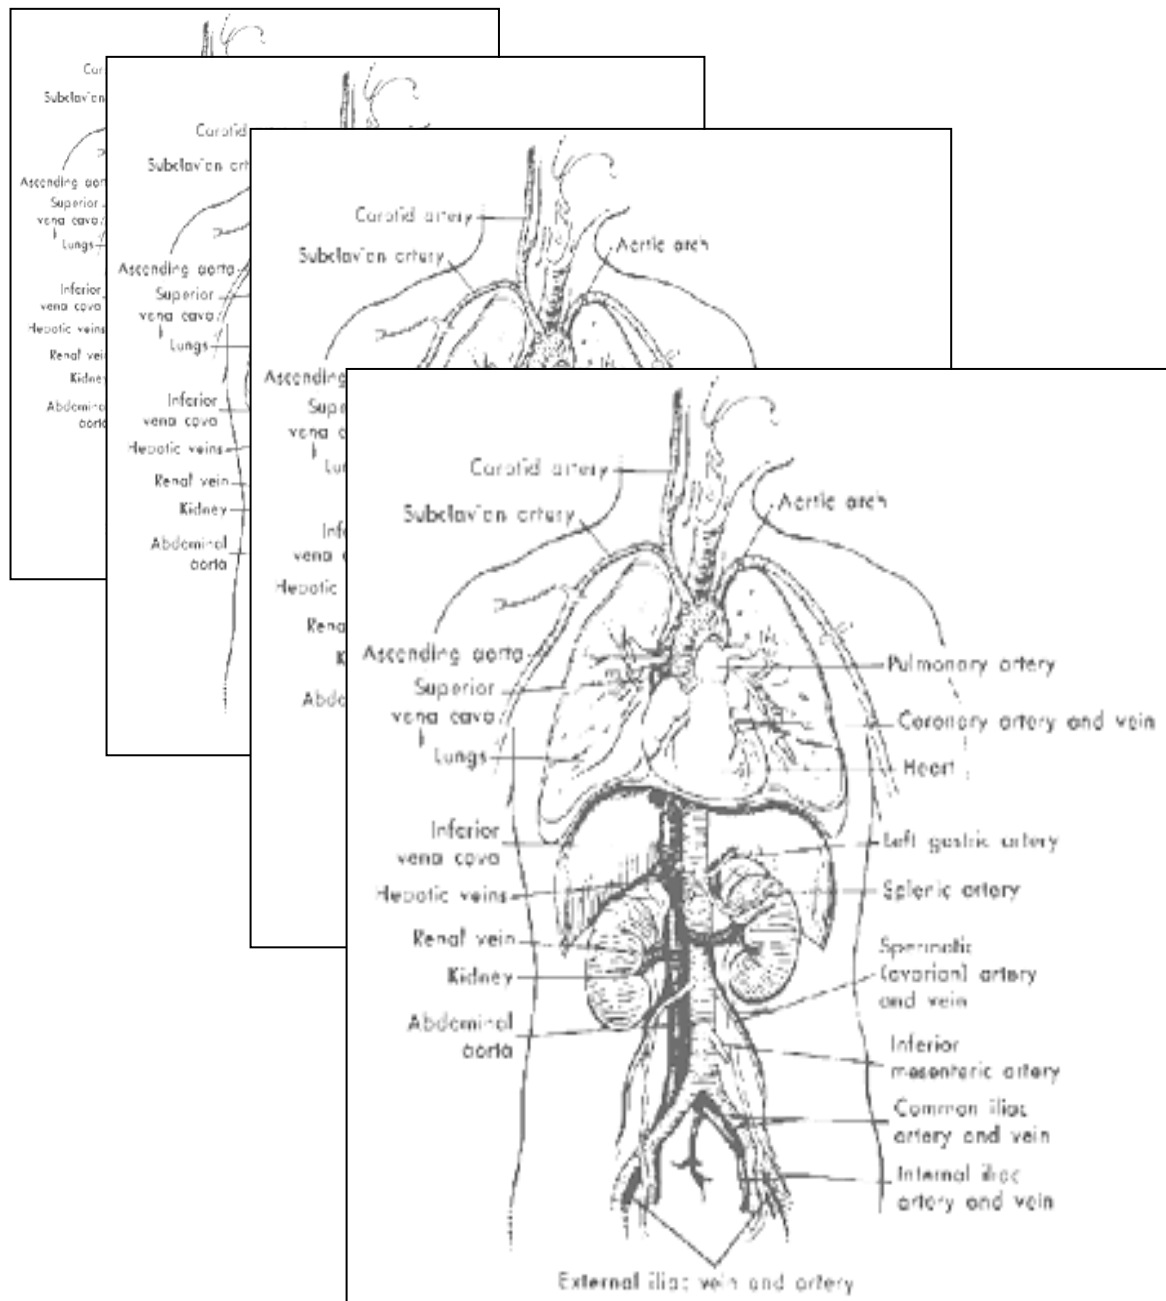 Car
Subclavian
Ascending aor
Superior
vena cava
Lungs
Inferior
vena cava
Hepatic veins
Renal vei
Kidney
Abdomina
aorta
Carotid
Subclavian art
Ascending aorta
Superior
vena cava
Lungs
Inferior
vena cava
Hepatic veins
Renal vein
Kidney
Abdominal
aorta
Carotid artery
Subclavian artery
Aortic arch
Ascending
Supe
vena c
Lu
Inf
vena c
Hepatic
Rena
K
Abdo
Carotid artery
Subclavian artery
Aortic arch
Ascending aorta
Superior
vena cava
Lungs
Inferior
vena cava
Hepatic veins
Renal vein
Kidney
Abdominal
aorta
Pulmonary artery
Coronary artery and vein
Heart
Left gastric artery
Splenic artery
Spermatic
(ovarian) artery
and vein
Inferior
mesenteric artery
Common iliac
artery and vein
Internal iliac
artery and vein
External iliac vein and artery